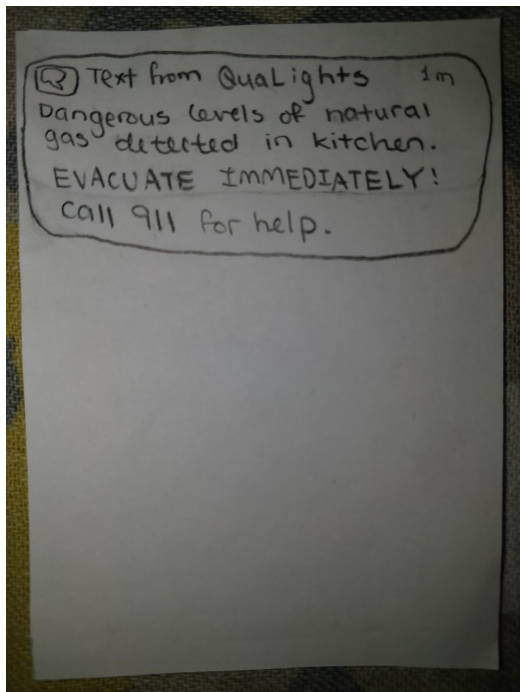 Text from QuaLights 1m
Dangerous levels of natural
gas detected in kitchen.
EVACUATE IMMEDIATELY!
Call 911 for help.